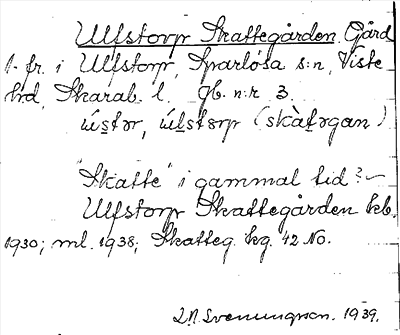 Ulfstorp Skattegården, Gård
1. fr. i Ulfstorp, Sparlösa s:n, Viste
hd, Skarab. l. Jb. n:r 3.
ú̀stər, ú̀lstərp (skàtəgan)
"Skatte" i gammal tid? –
Ulfstorp Skattegården kb.
1930; ml. 1938; Skatteg. kg. 42 No.
L. A. Svenungsson. 1939.